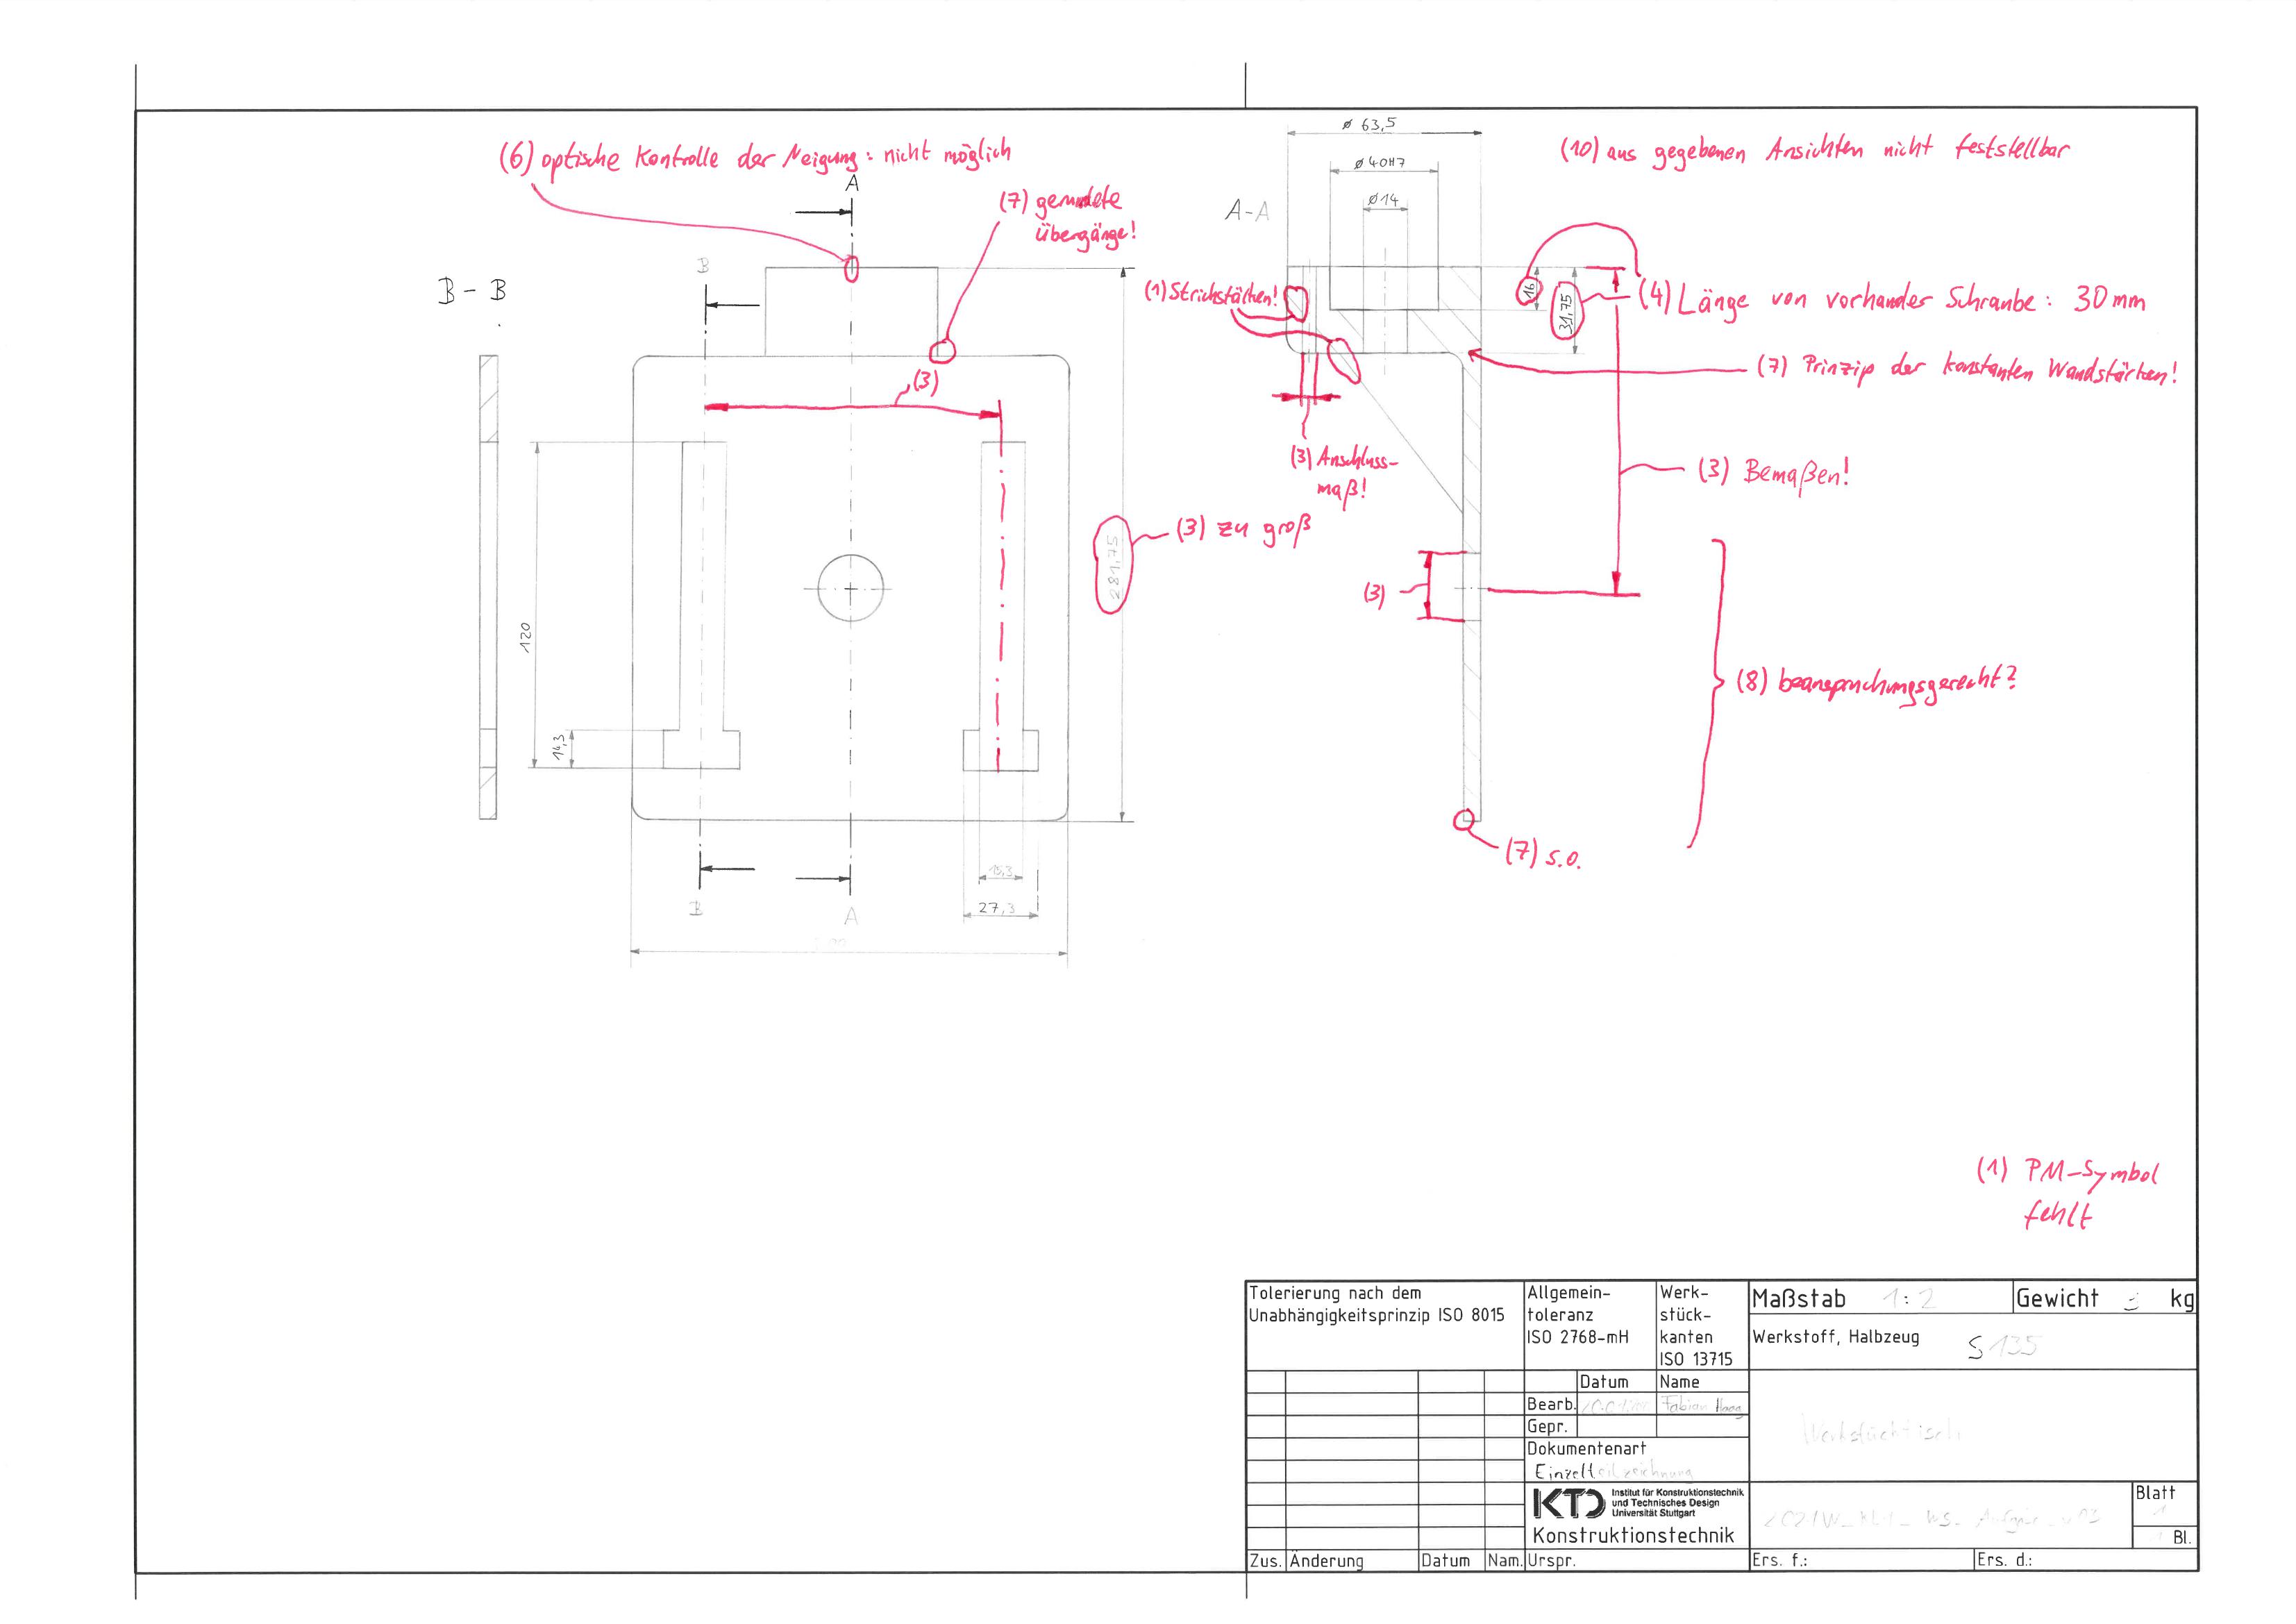 (6) optische Kontrolle der Neigung: nicht möglich
A
(7) gerundete
Übergänge!
B - B
B
(3)
120
14,3
(3) zu groß
281,75
15,3
27,3
B
A
A-A
ø 63,5
ø 40H7
ø14
(10) aus gegebenen Ansichten nicht feststellbar
(1) Strichstärken!
16
31,75
(4) Länge von vorhander Schraube: 30mm
(7) Prinzip der konstanten Wandstärken!
(3) Anschluss-
maß!
(3) Bemaßen!
(3)
(8) beanspruchungsgerecht?
(7) s.o.
(1) PM-Symbol
fehlt
Tolerierung nach dem
Unabhängigkeitsprinzip ISO 8015
Allgemein-
toleranz
ISO 2768-mH
Werk-
stück-
kanten
ISO 13715
Maßstab 1:2
Gewicht kg
Werkstoff, Halbzeug S135
Datum Name
Bearb. Fabian Haag
Gepr.
Dokumentenart
Einzelteilzeichnung
KTD Institut für Konstruktionstechnik
und Technisches Design
Universität Stuttgart
Konstruktionstechnik
Blatt
1
Bl.
Zus. Änderung Datum Nam. Urspr. Ers. f.: Ers. d.: